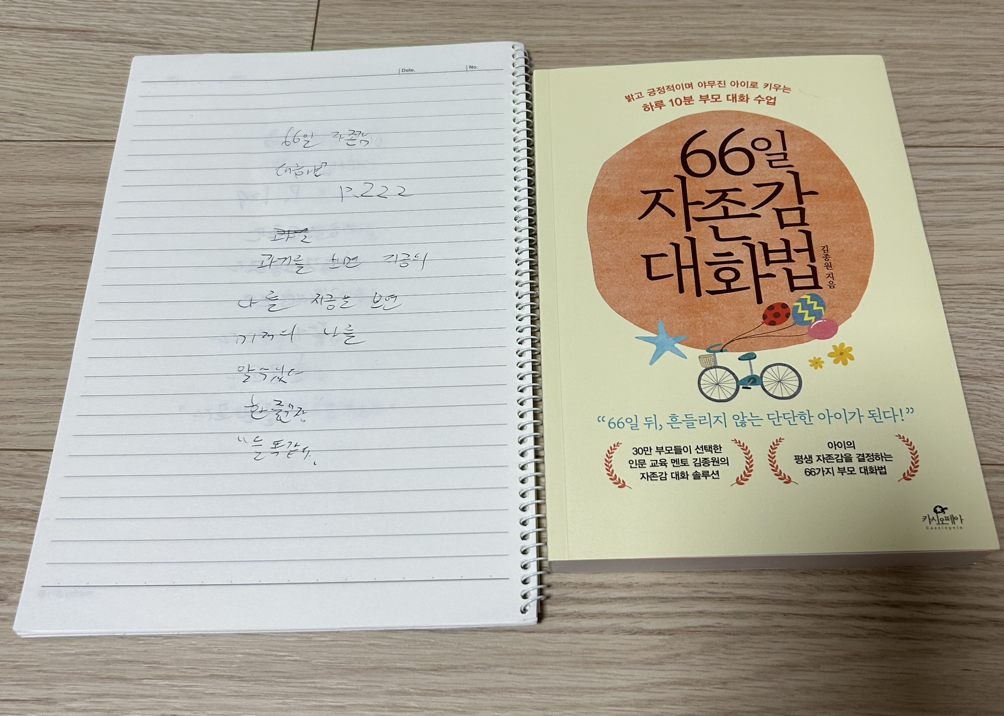 Date.
No.
66일 자존감
대화법
P.222
과기를 보면 지금의
나를 지금을 보면
나를
알 수 있다
한 줄
늘 똑같다.
밝고 긍정적이며 야무진 아이로 키우는
하루 10분 부모 대화 수업
66일
자존감
대화법
김종원 지음
“66일 뒤, 흔들리지 않는 단단한 아이가 된다!”
30만 부모들이 선택한
인문 교육 멘토 김종원의
자존감 대화 솔루션
아이의
평생 자존감을 결정하는
66가지 부모 대화법
카시오페아
Cassiopeia